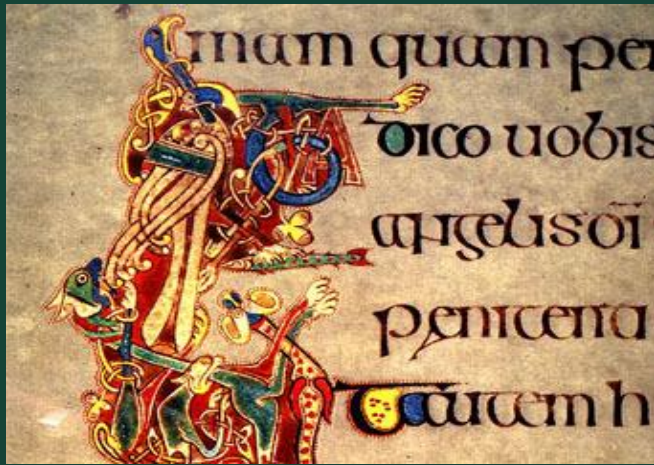 mam quam per
dico uobis
angelis di
penitentia
t autem h